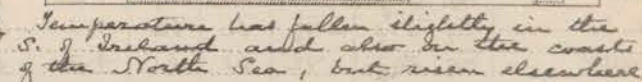 Temperature has fallen slightly in the
S. of Ireland and also on the coasts
of the North Sea, but risen elsewhere